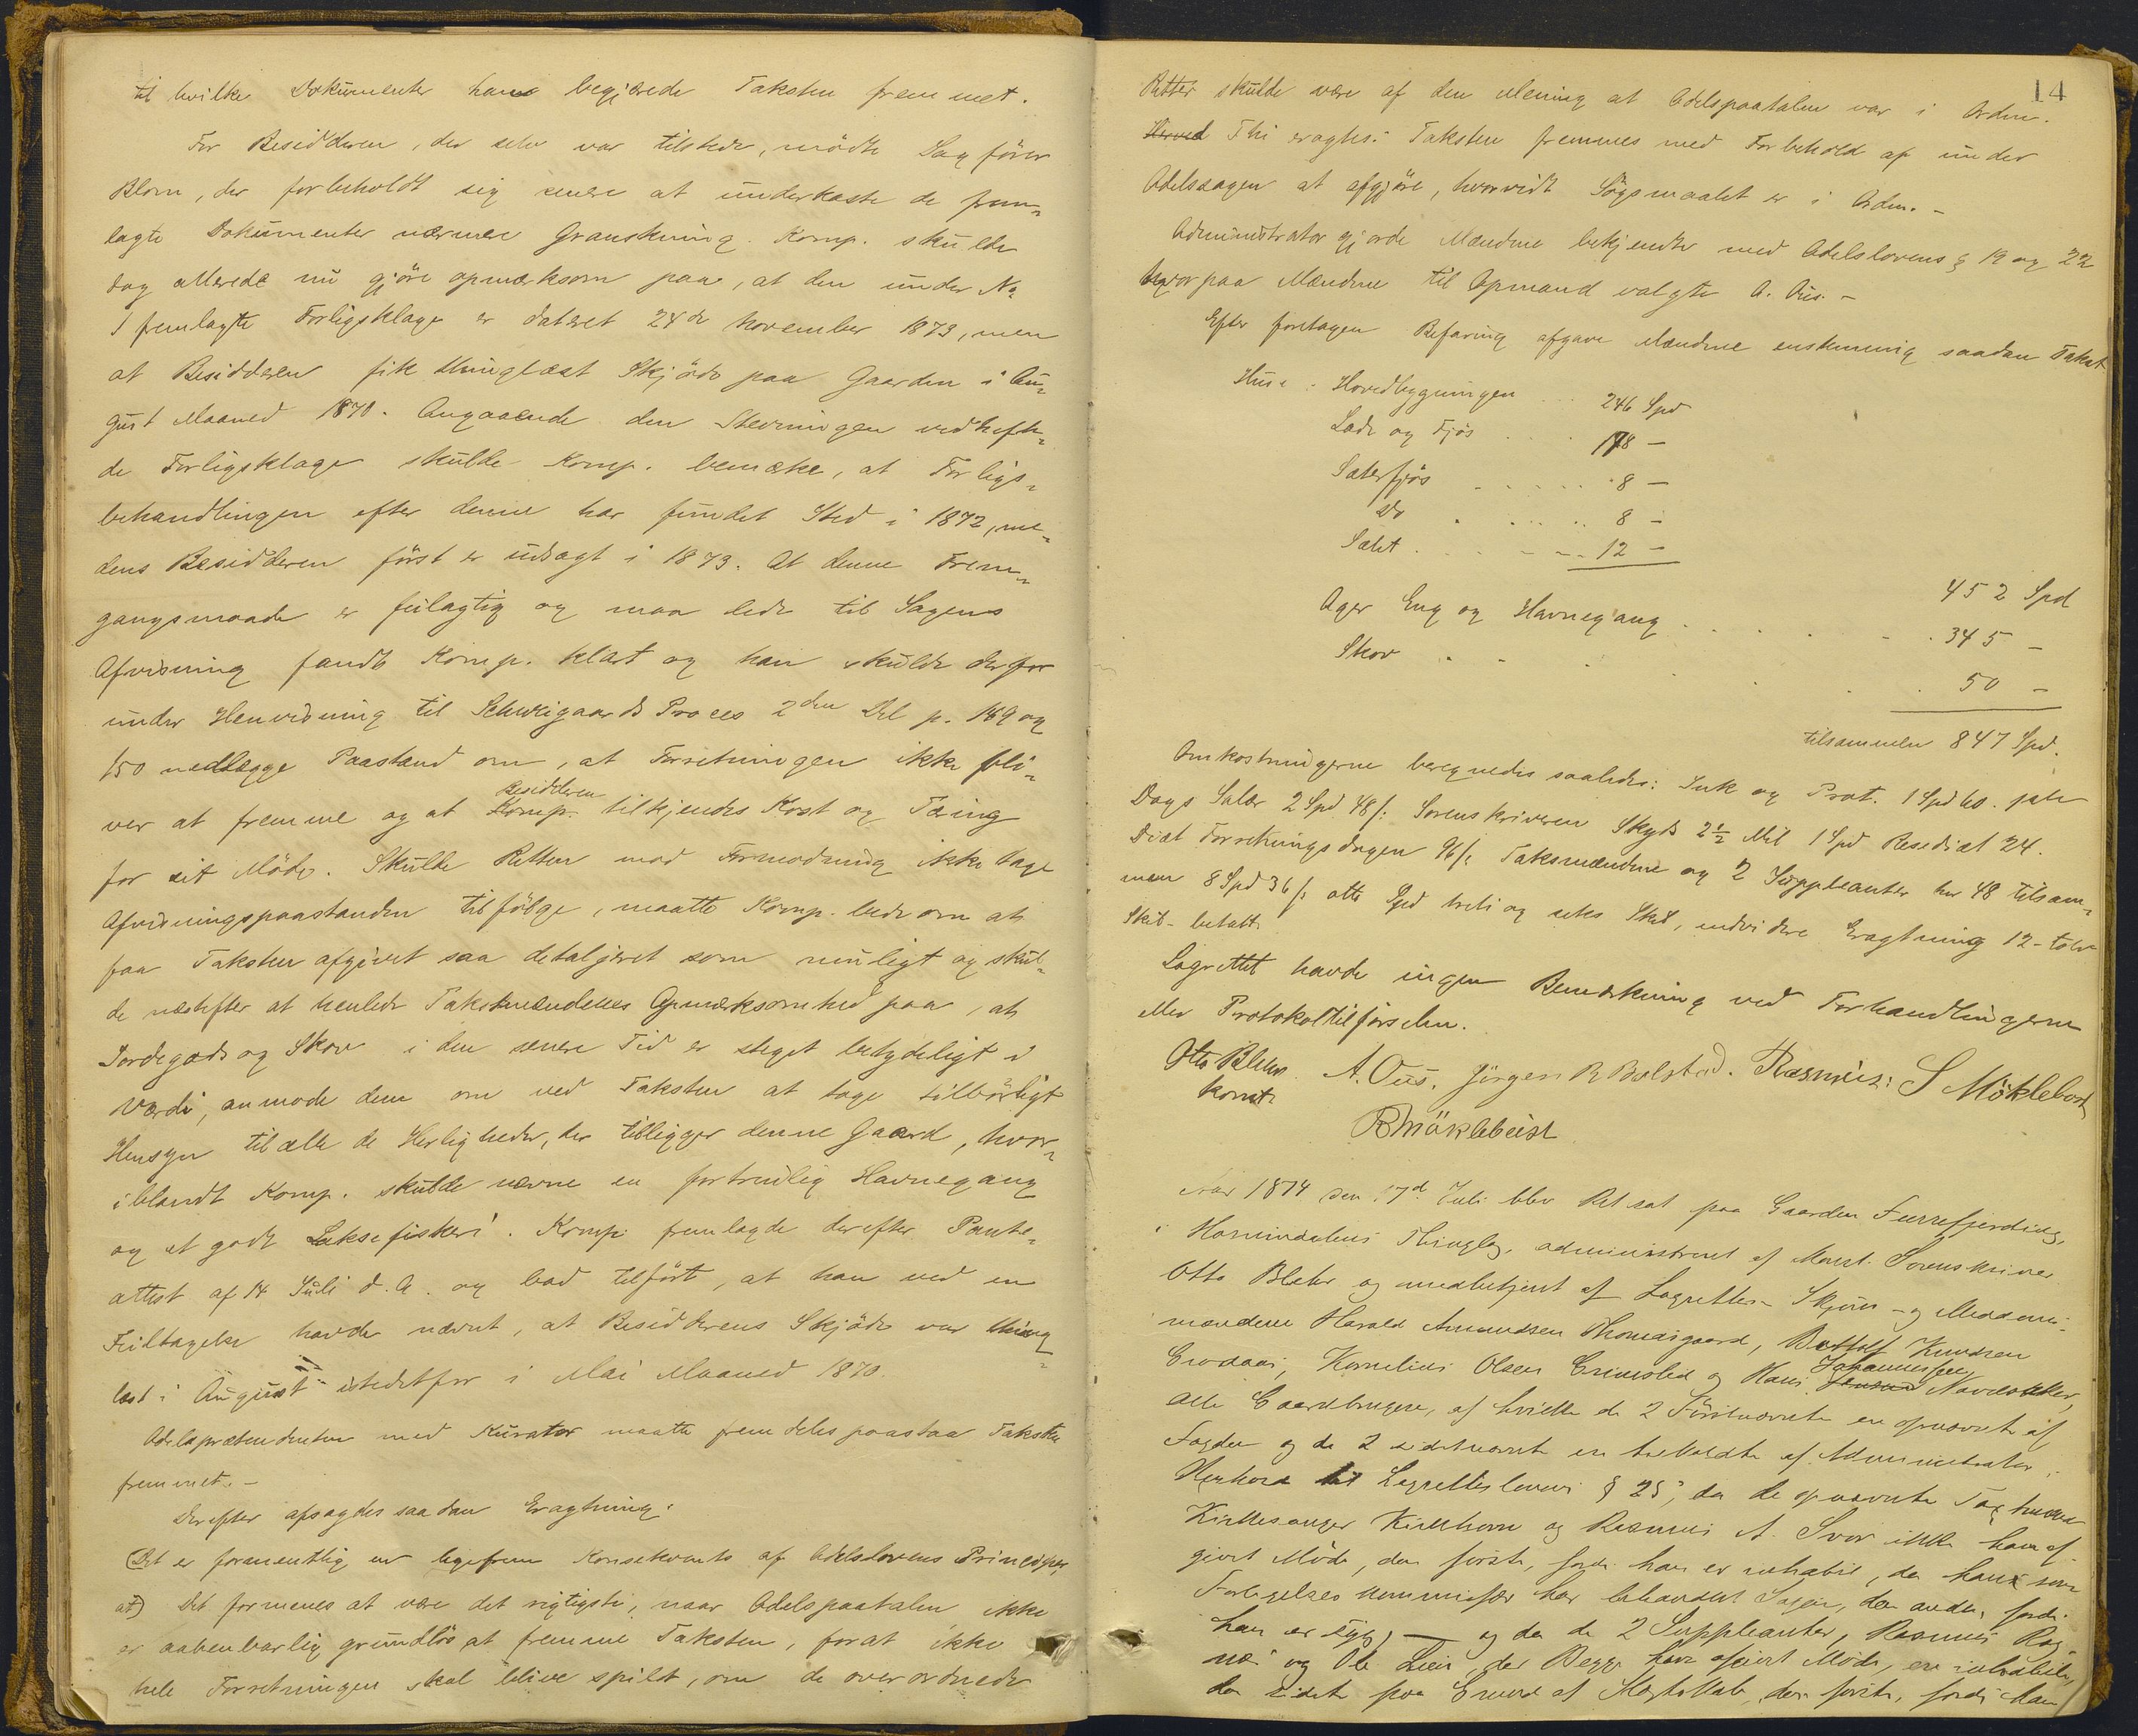 til hvilke Dokumenter han begjærede Taksten fremmet.
For Besidderen, der selv var tilstede, mödte Sagförer
Blom, der forbeholdt sig senere at underkaste de frem¬
lagte Dokumenter nærmere Granskning. Komp. skulde
dog allerede nu gjöre opmærksom paa, at den under No
1 fremlagte Forligsklage er dateret 24de November 1873, men
at Besidderen fik thinglæst Skjöde paa Gaarden i Au¬
gust Maaned 1870. Angaaende den Stevningen vedhefte¬
de Forligsklage skulde Komp. bemærke, at Forligs¬
behandlingen efter denne har fundet Sted i 1872, me¬
dens Besidderen först er udsagt i 1873. At denne Frem¬
gangsmaade er feilagtig og maa lede til Sagens
Afvisning fandt Komp. klart og han skulde derfor
under Henvisning til Schweigaards Proces 2den Del p. 149 og
150 nedlægge Paastand om, at Forretningen ikke bli¬
ver at fremme og at Komp. Besidderen tilkjendes Kost og Tæring
for sit Möde. Skulde Retten mod Formodning ikke tage
Afvisningspaastanden tilfölge, maatte Komp. bede om at
faa Taksten afgivet saa detaljeret som muligt og skul¬
de næstefter at henlede Takstmændenes Opmærksomhed paa, at
Jordegods og Skov i den senere Tid er steget betydeligt i
Værdi, anmode dem om ved Taksten at tage tilbörligt
Hensyn til alle de Herligheder, der tilligger denne Gaard, hvor¬
iblandt Komp. skulde nævne en fortrinlig Havnegang
og et godt Laksefiskeri. Komp. fremlagde derefter Pante¬
attest af 14 Juli d. A. og bad tilfört, at han ved en
Feiltagelse havde nævnt, at Besidderens Skjöde var thing¬
læst i August istedetfor i Mai Maaned 1870.
Odelsprætendenten med Kurator maatte fremdeles paastaa Taksten
fremmet. -
Derefter afsagdes saadan Eragtning:
(Det er formentlig en ligefrem Konsekvents af Odelslovens Principer,
at) Det formenes at være det rigtigste, naar Odelspaatalen ikke
er aabenbarlig grundlös at fremme Taksten, forat ikke
hele Forretningen skal blive spildt, om de overordnede
14
Retter skulde være af den Mening at Odelspaatalen var i Orden.
Herved Thi eragtes: Taksten fremmes med Forbehold af under
Odelssagen at afgjöre, hvorvidt Sögsmaalet er i Orden. -
Administrator gjorde Mændene bekjendte med Odelslovens § 19 og 22
hvorpaa Mændene til Opmand valgte A. Ous. -
Efter foretagen Befaring afgave Mændene enstemmig saadan Takst
Huse: Hovedbygningen ... 246 Spd
Lade og Fjös .... 178 -
Sæterfjös ...... 8 -
Do ..... 8 -
Sælet ..... 12 -
452 Spd
Ager Eng og Havnegang ...... 345 -
Skov ...... 50 -
tilsammen 847 Spd.
Omkostningerne beregnedes saaledes: Ink og Prot. 1 Spd 60.
Dags Salær 2 Spd 48 s: Sorenskriveren Skyds 2½ Mil 1 Spd Resediæt 24.
Diæt Forretningsdagen 96 s: Taksmændene og 2 Suppleanter hver 48 tilsam¬
men 8 Spd 36 s: otte Spd treti og seks Skil, endvidere Eragtning 12 - tolv
Skil - betalt.
Lagrettet havde ingen Bemærkning ved Forhandlingerne
eller Protokoltilförselen.
Otto Blehr. A. Ous. Jörgen R Bolstad. Rasmus: S Möklebost
konst.
R Möklebust
Aar 1874 den 17d Juli blev Ret sat paa Gaarden Furrefjerding,
i Hornindalens Thinglag, administreret af konst. Sorenskriver
Otto Blehr og medbetjent af Lagrettes- Skjöns- og Meddoms-
mændene Harald Amundsen Thomasgaard, Bottolf Knudsen
Grodaas, Kornelius Olsen Grimsbid og Hans Jensen Johannessen Navelsaker,
alle Gaardbrugere, af hvilke de 2 Förstnævnte er opnævnt af
Fogden og de 2 sidstnævnte er tilkaldte af Administrator,
Henhold til Lagretteslovens § 25, da de opnævnte
Kirkesanger Kirkhorn og Rasmus A. Svor ikke have af-
givet Möde, den förste, fordi han er inhabil, da han som
Forligelseskommissær har behandlet Sagen, den anden, fordi
han er syg, - og da de 2 Suppleanter, Rasmus
og Ole Lien, der Begge have afgivet Möde, ere inhabile,
den sidste paa Grund af Slægtskab, den förste, fordi han